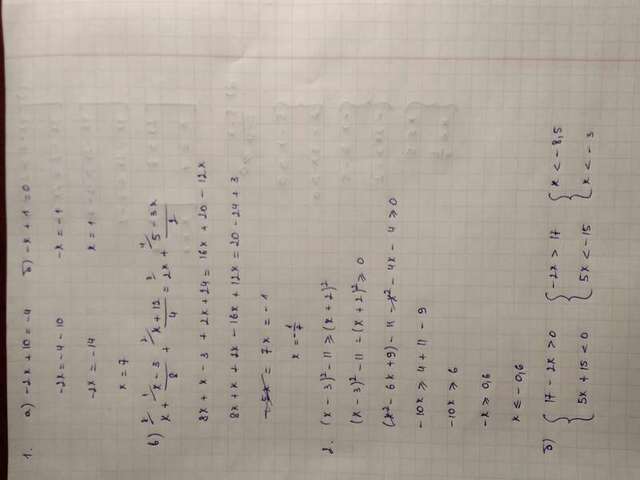 1. а) -2x + 10 = -4 б) -x + 1 = 0
-2x = -4 - 10 -x = -1
-2x = -14 x = 1
x = 7
в) x + x - 3/8 + x + 12/4 = 2x + 5 - 3x/2
8x + x - 3 + 2x + 24 = 16x + 20 - 12x
8x + x + 2x - 16x + 12x = 20 - 24 + 3
7x = -1
x = -1/7
2. (x - 3)² - 11 ≥ (x + 2)²
(x - 3)² - 11 = (x + 2)² ≥ 0
(x² - 6x + 9) - 11 - x² - 4x - 4 ≥ 0
-10x ≥ 4 + 11 - 9
-10x ≥ 6
-x ≥ 0,6
x ≤ -0,6
б) { 17 - 2x > 0 { -2x > 17 { x < -8,5
5x + 15 < 0 5x < -15 x < -3